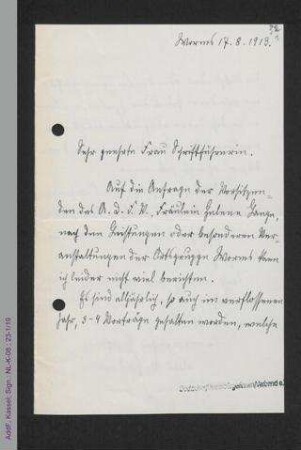 Worms 17.8.1913.
Sehr geehrte Frau Schriftführerin.
Auf die Anfrage der Vorsitzen-
den des A. D. F. V., Fräulein Helene Lange,
nach den Leistungen oder besonderen Ver-
anstaltungen der Ortsgruppe Worms kann
ich leider nicht viel berichten.
Es sind alljährlich, so auch im verflossenen
Jahr, 3-4 Vorträge gehalten worden, welche
AddF, Kassel, Sign. NL-K-08 ; 23-1/19